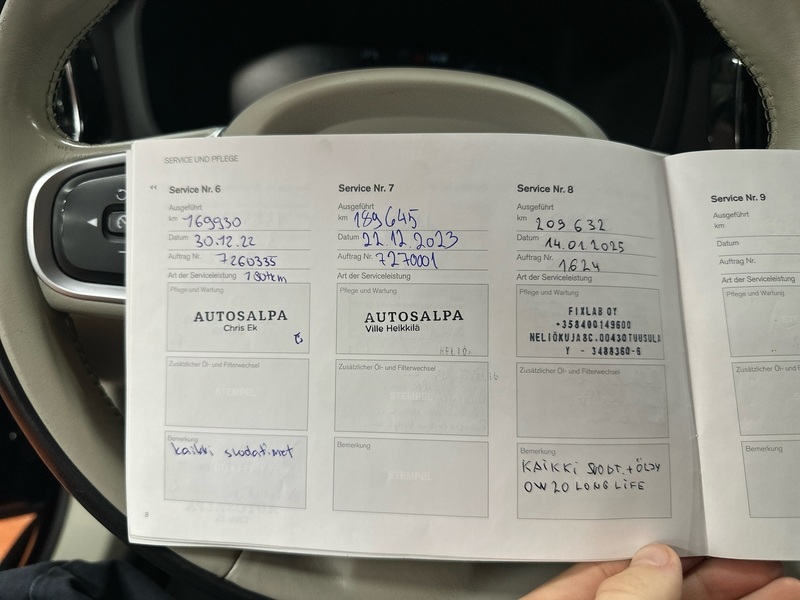 SERVICE UND PFLEGE
Service Nr. 6
Ausgeführt
km 169930
Datum 30.12.22
Auftrag Nr. 7260335
Art der Serviceleistung 180tkm
Pflege und Wartung
AUTOSALPA
Chris Ek
Zusätzlicher Öl- und Filterwechsel
STEMPEL
Bemerkung
kaikki suodattimet
8
Service Nr. 7
Ausgeführt
km 189645
Datum 22.12.2023
Auftrag Nr. 7270001
Art der Serviceleistung
Pflege und Wartung
AUTOSALPA
Ville Heikkilä
Zusätzlicher Öl- und Filterwechsel
STEMPEL
Bemerkung
STEMPEL
Service Nr. 8
Ausgeführt
km 209 632
Datum 14.01.2025
Auftrag Nr. 1624
Art der Serviceleistung
Pflege und Wartung
FIXLAB OY
+358400149600
NELIÖKUJA8C.00430TUUSULA
Y - 3488360-6
Zusätzlicher Öl- und Filterwechsel
Bemerkung
KAIKKI SUODT.+ÖLJY
0W20 LONG LIFE
Service Nr. 9
Ausgeführt
km
Datum
Auftrag Nr.
Art der Serviceleistung
Pflege und Wartung
Zusätzlicher Öl- und
Bemerkung